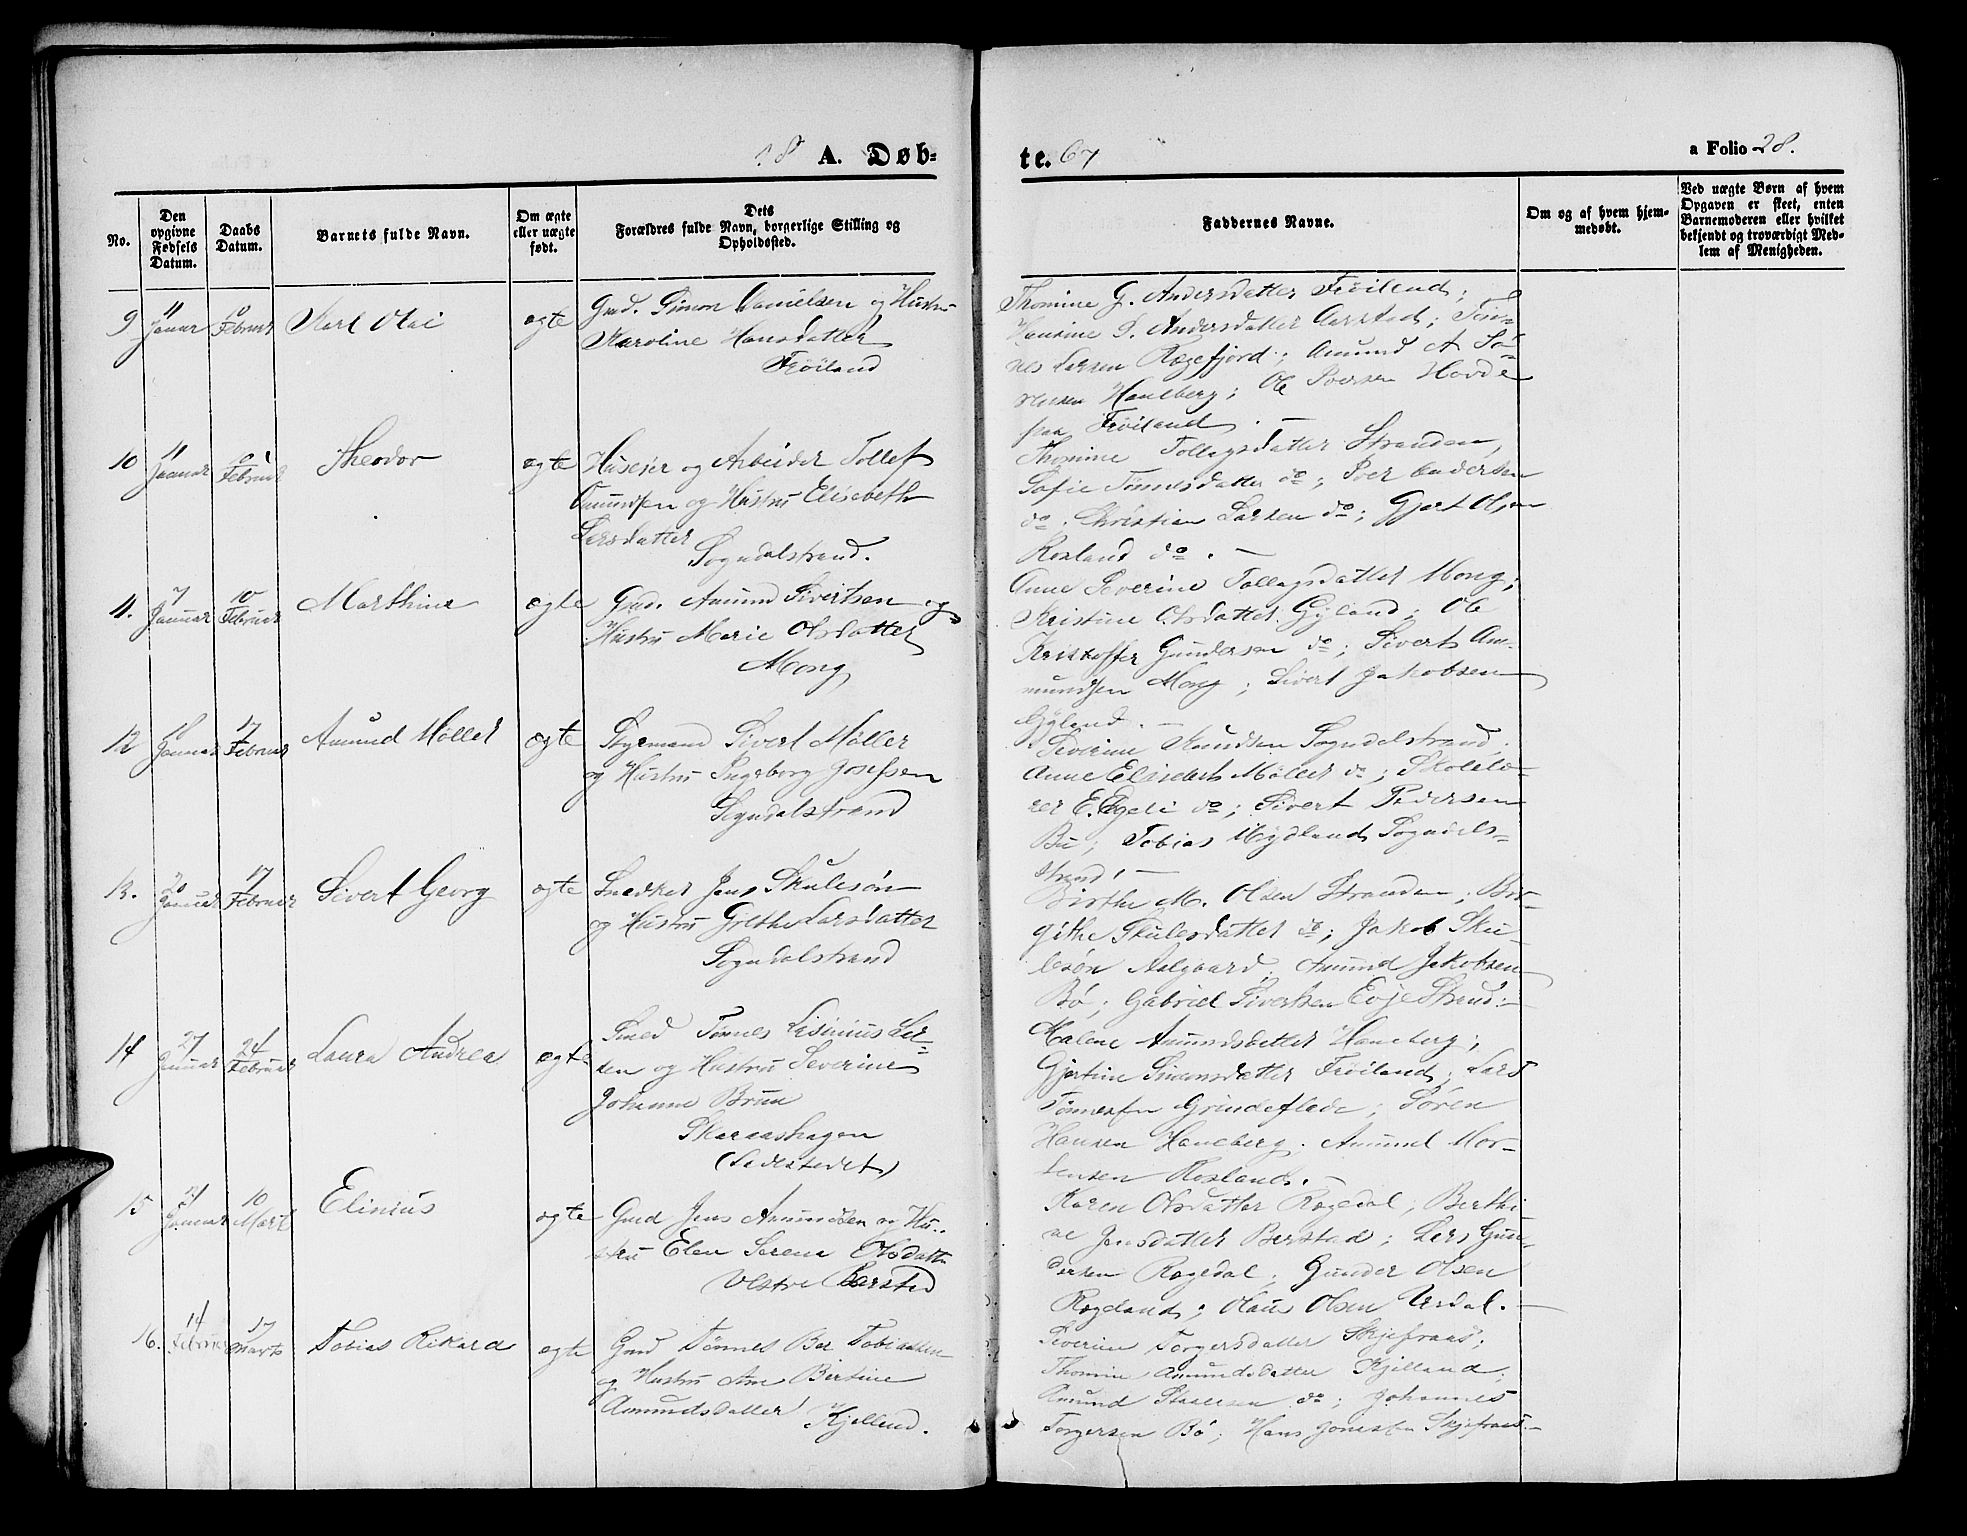 18 A. Døb-
te. 67
a Folio 28.
No.
Den opgivne Fødsels Datum.
Daabs Datum.
Barnets fulde Navn.
Om ægte eller uægte født.
Dets Forældres fulde Navn, borgerlige Stilling og Opholdssted.
Faddernes Navne.
Om og af hvem hjemmedøbt.
Ved uægte Børn af hvem Opgaven er skeet, enten Barnemoderen eller hvilket bekjendt og troværdigt Medlem af Menigheden.
9 11 Januar 10 Februar Karl Olai ægte
Gmd. Simon Danielsen og Hustru
Karoline Hansdatter
Frøiland
Thomine G. Andersdatter Frøiland;
Hansine D. Andersdatter Aarstad; Tøn-
nes Larsen Rægefjord; Amund A Sø-
rensen Haneberg; Ole Sversen Hovde
paa Frøiland. —
10 11 Januar Februar Theodor ægte
Huseier og Arbeider Tollef
Amundsen og Hustru Elisabeth
Larsdatter
Sogndalstrand.
Thomine Tollagsdatter Stranden,
Sofie Tønnesdatter do; Peer Andersen
do. Christian Larsen do; Gjert Olsen
Rosland do. —
11. 7 Januar 10 Februar Marthine ægte
Gmd. Amund Sivertsen og
Hustru Marie Olsdatter
Mong
Anne Severine Tollagsdatter Mong;
Kristine Olsdatter Gyland; Ole
Kristoffer Gundersen do; Sivert Am-
mundsen Mong; Sivert Jakobsen
Gyland. —
12 16 Januar 17 Februar Amund Møller ægte
Styrmand Sivert Møller
og Hustru Ingeborg Josefsen
Sogndalstrand
Siverine Knudsen Sogndalstrand;
Anne Elisabeth Møller do; Skolelæ-
rer E. Egeli do; Sivert Pedersen
Bu; Tobias Mydland Sogndals-
strand. —
13. 20 Januar 17 Februar Sivert Georg ægte
Snedker Jens Skulesøn
og Hustru Grethe Larsdatter
Sogndalstrand
Birthe M. Olsen Stranden; Bir-
githe Skulesdatter do; Jakob Sku-
lesøn Aalgaard; Amund Jakobsen
Bø; Gabriel Sivertsen Evje Strand. —
14 27 Januar 24 Februar Laura Andrea ægte
Smed Tønnes Lisinius Lar-
sen og Hustru Severine
Johanne Bruu
Skaraashagen
(Ladestedet)
Malene Amundsdatter Haneberg;
Gjertine Simonsdatter Frøiland; Lars
Tønnessen Grindeflade; Søren
Hansen Haneberg; Amund Mor-
tensen Rosland. —
15 21 Januar 10 Marts Elinius ægte
Gmd Jens Amundsen og Hu-
stru Elen Serene Olsdatter
Vestre Barstad
Karen Olsdatter Rægedal; Berthi-
ne Jensdatter Berstad; Lars Gun-
dersen Rægedal; Gunder Olsen
Rægeland; Olaus Olsen Urdal. —
16. 14 Februar 17 Marts Tobias Rikard ægte
Gmd Tønnes Ber Tobiassen
og Hustru Ane Birtine
Amundsdatter Kjelland.
Siverine Torgersdatter Skjefraas;
Thomine Amundsdatter Kjelland;
Amund do; Johannes
Torgersen Bø; Hans Jonassen Skjefraas. —